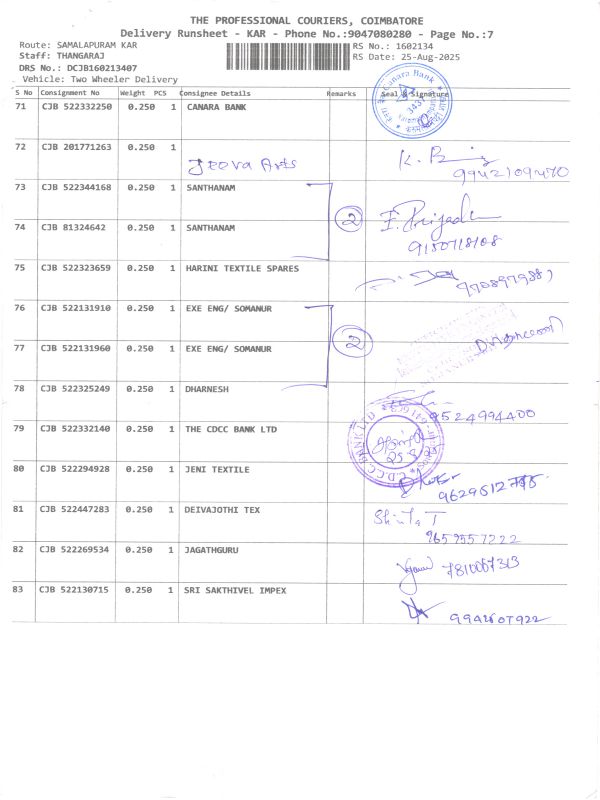 THE PROFESSIONAL COURIERS, COIMBATORE
Delivery Runsheet - KAR - Phone No.:9047080280 - Page No.:7
Route: SAMALAPURAM KAR RS No.: 1602134
Staff: THANGARAJ RS Date: 25-Aug-2025
DRS No.: DCJB160213407
Vehicle: Two Wheeler Delivery
S No Consignment No Weight PCS Consignee Details Remarks Seal & Signature
71 CJB 522332250 0.250 1 CANARA BANK
Canara Bank
72 CJB 201771263 0.250 1
Jeeva Arts
9942109470
73 CJB 522344168 0.250 1 SANTHANAM
2
74 CJB 81324642 0.250 1 SANTHANAM
9150718108
75 CJB 522323659 0.250 1 HARINI TEXTILE SPARES
76 CJB 522131910 0.250 1 EXE ENG/ SOMANUR
2
77 CJB 522131960 0.250 1 EXE ENG/ SOMANUR
78 CJB 522325249 0.250 1 DHARNESH
9524994400
79 CJB 522332140 0.250 1 THE CDCC BANK LTD
80 CJB 522294928 0.250 1 JENI TEXTILE
81 CJB 522447283 0.250 1 DEIVAJOTHI TEX
9659557222
82 CJB 522269534 0.250 1 JAGATHGURU
7810067313
83 CJB 522130715 0.250 1 SRI SAKTHIVEL IMPEX